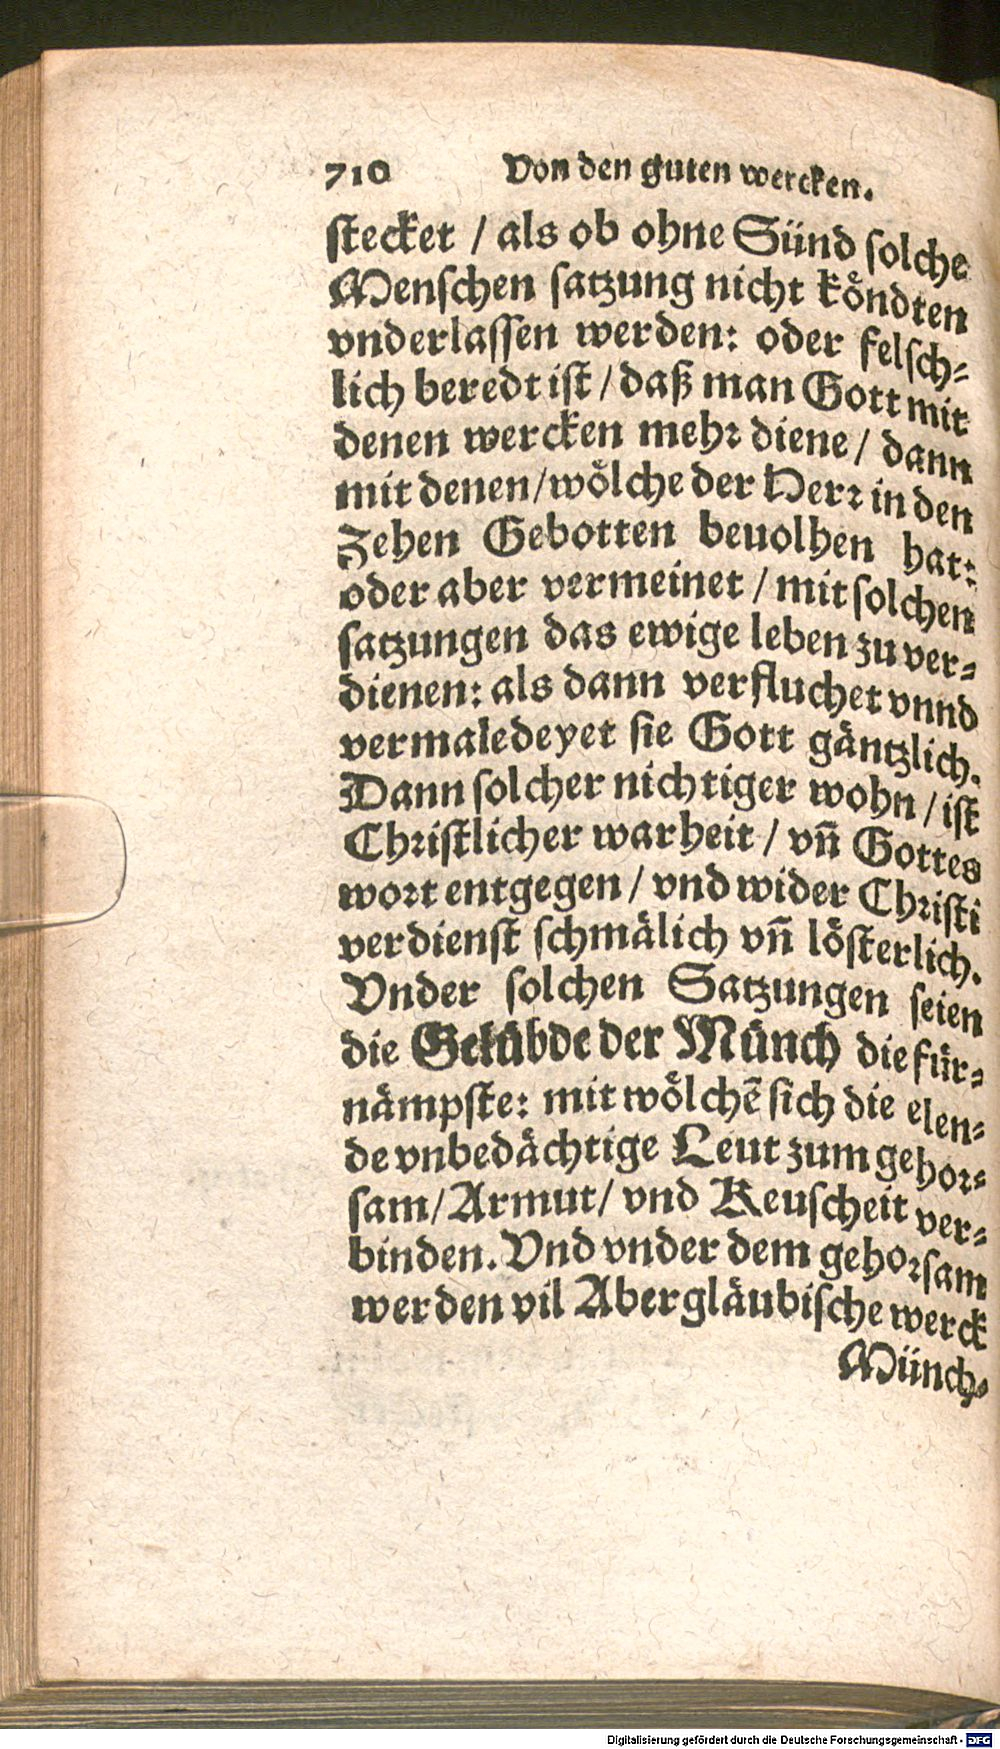 710 Von den guten wercken.
stecket / als ob ohne Sünd solche
Menschen satzung nicht köndten
vnderlassen werden: oder felsch-
lich beredt ist / daß man Gott mit
denen wercken mehr diene / dann
mit denen / wölche der Herr in den
Zehen Gebotten beuolhen hat:
oder aber vermeinet / mit solchen
satzungen das ewige leben zu ver-
dienen: als dann verfluchet vnnd
vermaledeyet sie Gott gäntzlich.
Dann solcher nichtiger wohn / ist
Christlicher warheit / vn̄ Gottes
wort entgegen / vnd wider Christi
verdienst schmälich vn̄ lösterlich.
Vnder solchen Satzungen seien
die Gelübde der Münch die für-
nämpste: mit wölchē sich die elen-
de vnbedächtige Leut zum gehor-
sam / Armut / vnd Keuscheit ver-
binden. Vnd vnder dem gehorsam
werden vil Abergläubische werck
Münch-
Digitalisierung gefördert durch die Deutsche Forschungsgemeinschaft - DFG